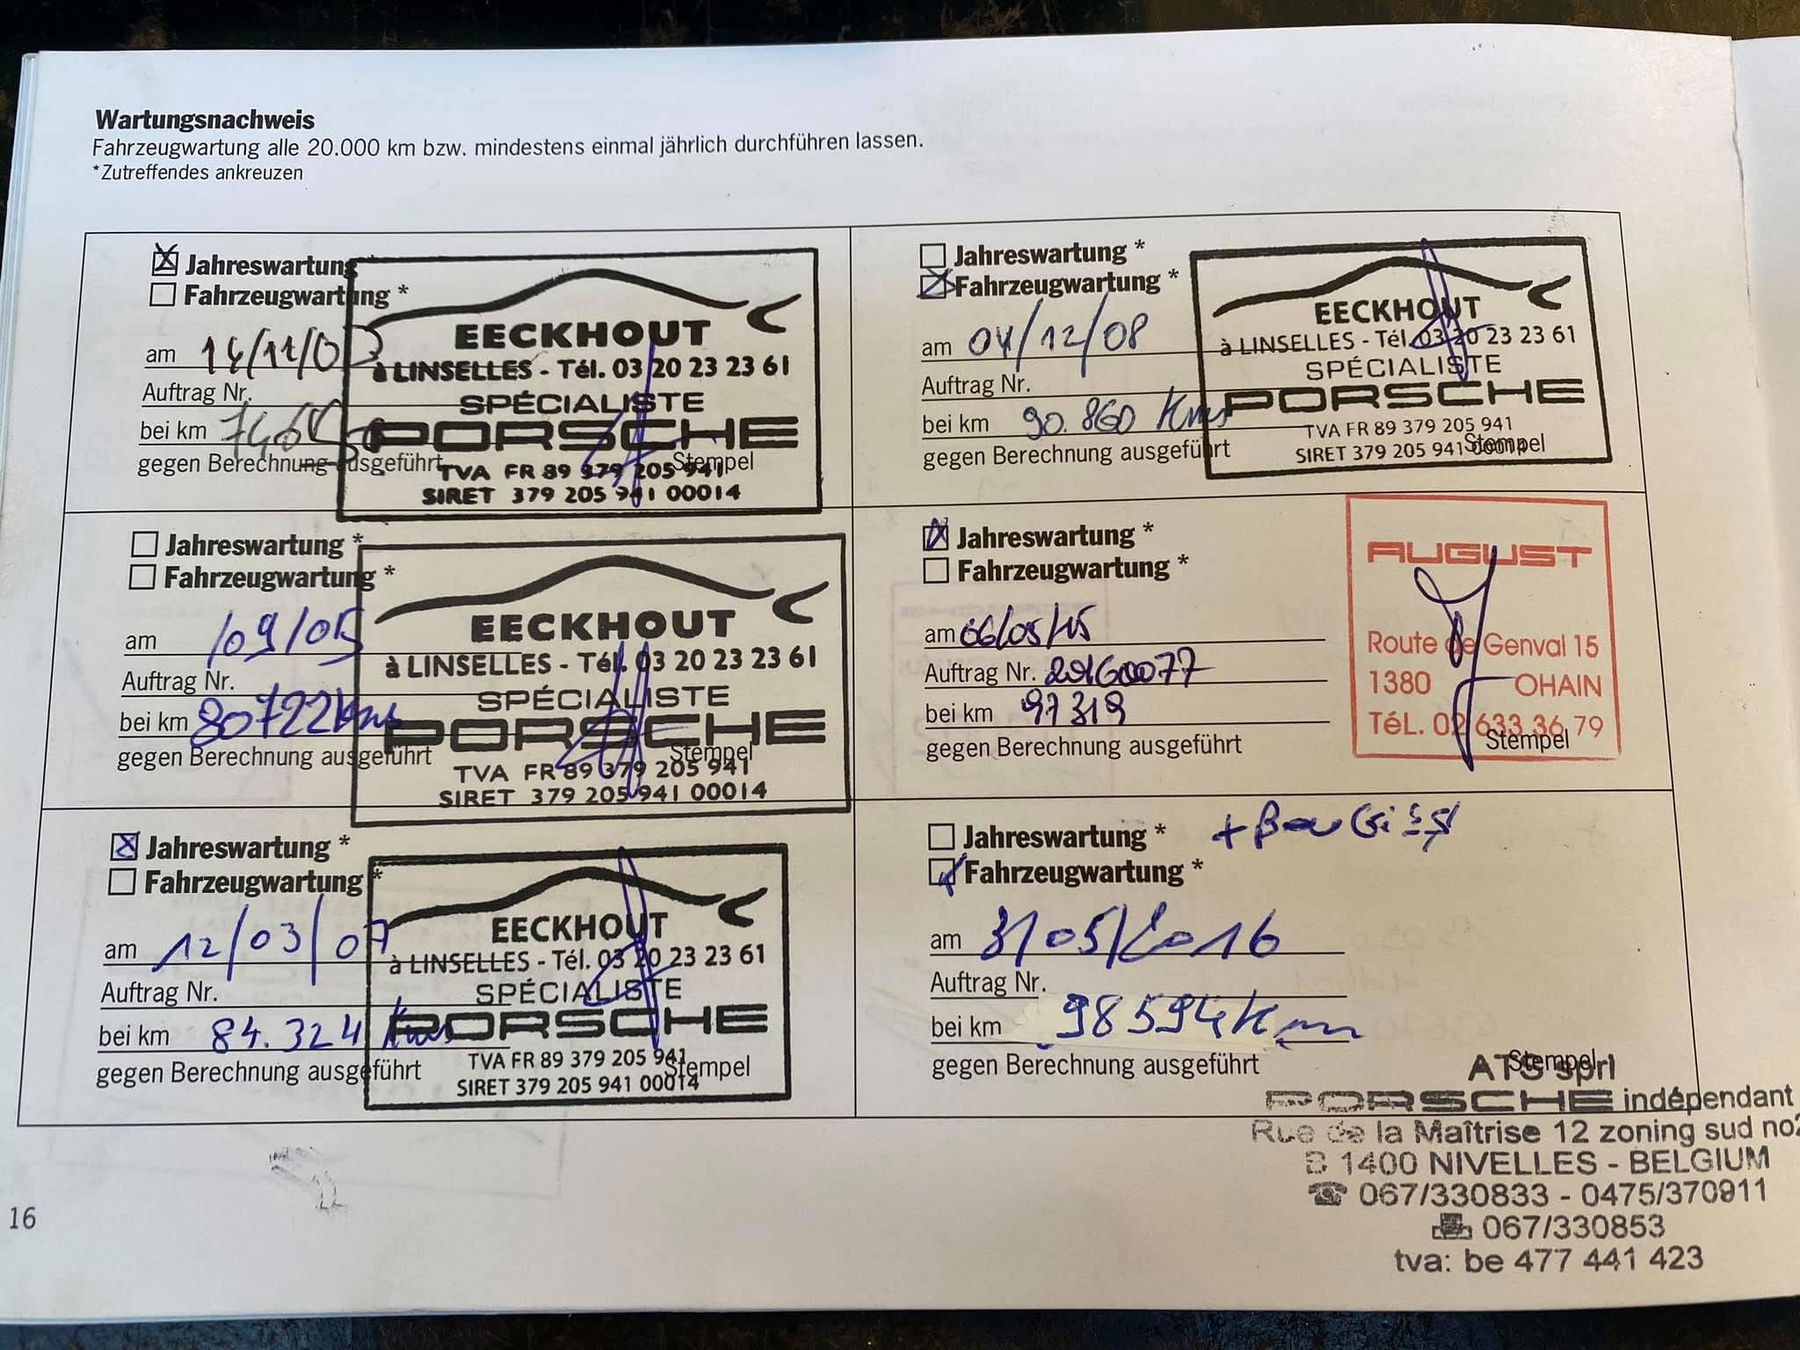 Wartungsnachweis
Fahrzeugwartung alle 20.000 km bzw. mindestens einmal jährlich durchführen lassen.
*Zutreffendes ankreuzen
Jahreswartung
Fahrzeugwartung *
am 14/11/03
Auftrag Nr.
bei km
gegen Berechnung ausgeführt
Stempel
EECKHOUT
à LINSELLES - Tél. 03 20 23 23 61
SPÉCIALISTE
PORSCHE
TVA FR 89 379 205 941
SIRET 379 205 941 00014
Jahreswartung *
Fahrzeugwartung *
am /09/05
Auftrag Nr.
bei km 80722 kms
gegen Berechnung ausgeführt
Stempel
EECKHOUT
à LINSELLES - Tél. 03 20 23 23 61
SPÉCIALISTE
PORSCHE
TVA FR 89 379 205 941
SIRET 379 205 941 00014
Jahreswartung *
Fahrzeugwartung *
am 12/03/07
Auftrag Nr.
bei km 84.324 Kms
gegen Berechnung ausgeführt
Stempel
EECKHOUT
à LINSELLES - Tél. 03 20 23 23 61
SPÉCIALISTE
PORSCHE
TVA FR 89 379 205 941
SIRET 379 205 941 00014
Jahreswartung *
Fahrzeugwartung *
am 04/12/08
Auftrag Nr.
bei km 90.860 Kms
gegen Berechnung ausgeführt
Stempel
EECKHOUT
à LINSELLES - Tél. 03 20 23 23 61
SPÉCIALISTE
PORSCHE
TVA FR 89 379 205 941
SIRET 379 205 941 00014
Jahreswartung *
Fahrzeugwartung *
am 06/05/15
Auftrag Nr. 20160077
bei km 97319
gegen Berechnung ausgeführt
Stempel
AUGUST
Route de Genval 15
1380 OHAIN
TéL. 02 633 36 79
Jahreswartung * + Bougies
Fahrzeugwartung *
am 31/05/2016
Auftrag Nr.
bei km 98594 Km
gegen Berechnung ausgeführt
Stempel
ATS sprl
PORSCHE indépendant
Rue de la Maîtrise 12 zoning sud no2
B 1400 NIVELLES - BELGIUM
☎ 067/330833 - 0475/370911
067/330853
tva: be 477 441 423
16